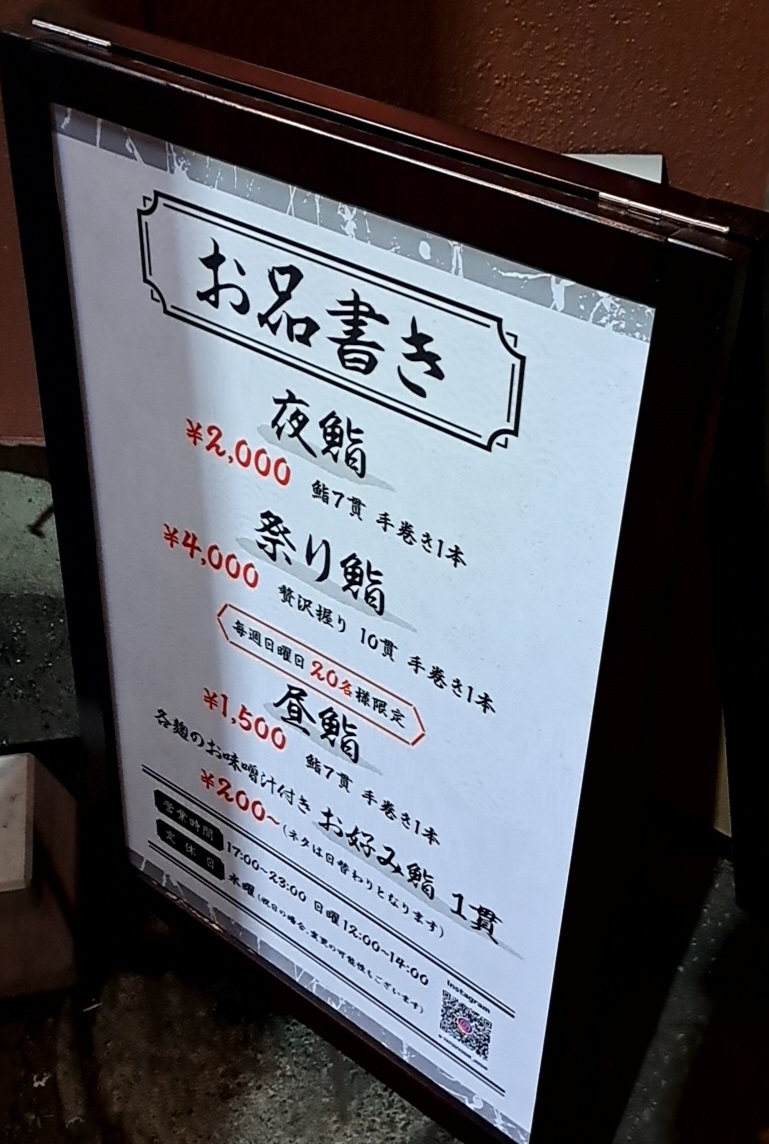 お品書き
夜鮨
¥2,000 鮨7貫 手巻き1本
祭り鮨
¥4,000 贅沢握り 10貫 手巻き1本
毎週日曜日 20名様限定
昼鮨
¥1,500 鮨7貫 手巻き1本
各麹のお味噌汁付き
お好み鮨 1貫
¥200~ (ネタは日替わりとなります)
営業時間 17:00~23:00 日曜12:00~14:00
定休日 水曜 (祝日の場合、変更の可能性もございます)
Instagram